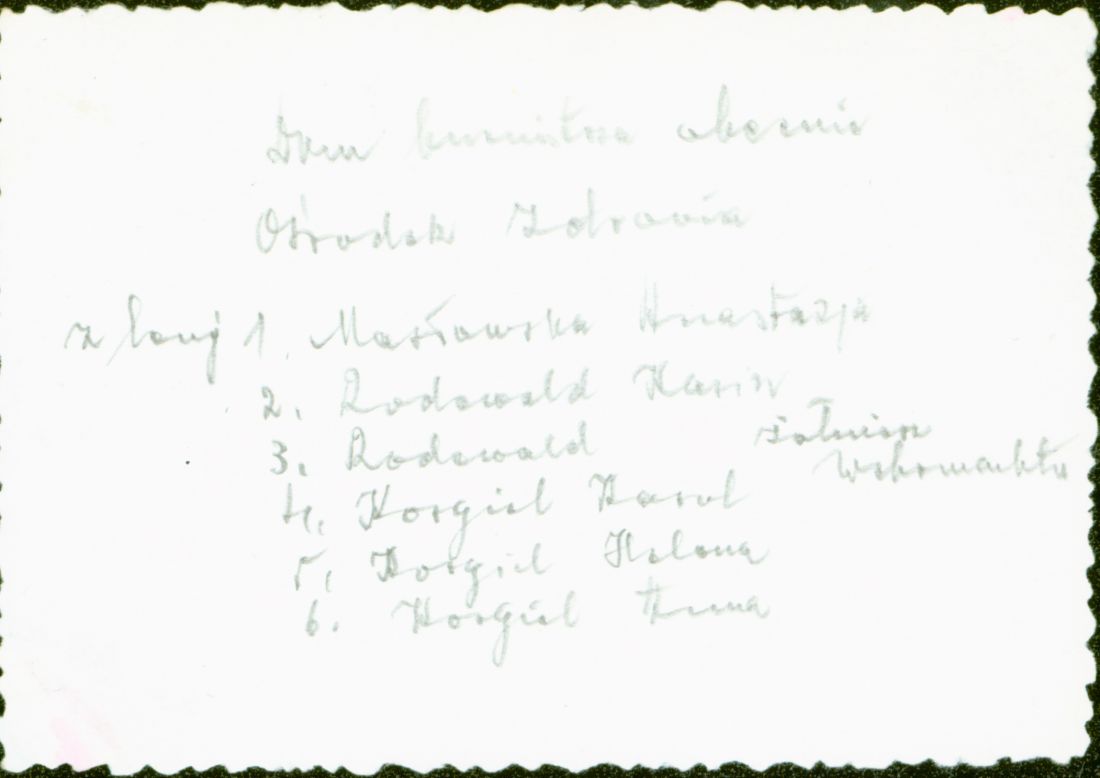 Dom burmistrza obecnie
Ośrodek Zdrowia
z lewej 1. Masłowska Anastazja
2. Rodewald
3. Rodewald żołnierz
Wehrmachtu
4. Korgiel Karol
5. Korgiel Helena
6. Korgiel Anna